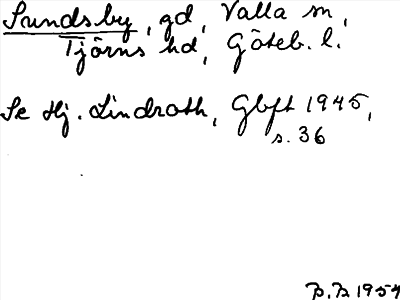 Sundsby, gd, Valla sn,
Tjörns hd, Göteb. l.
Se Hj. Lindroth, Gbft 1945,
s. 36
B.B 1957